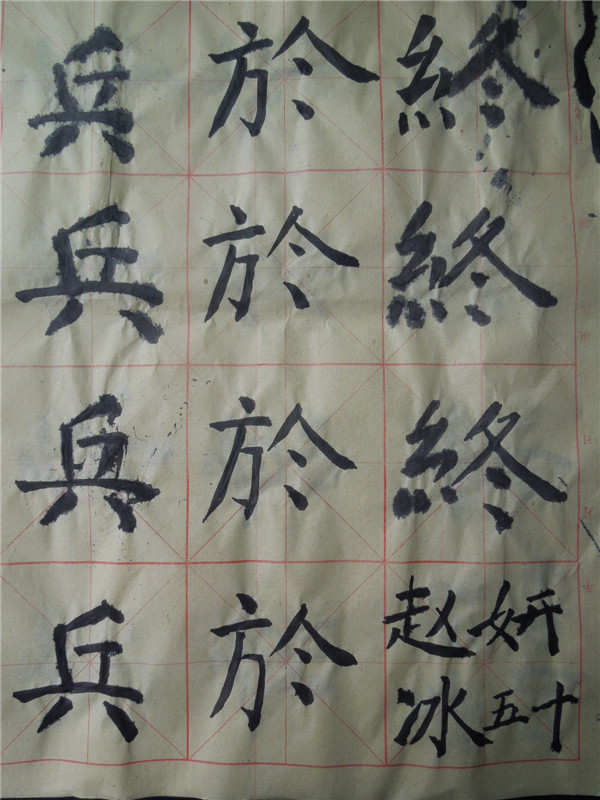 兵於終
兵於終
兵於終
兵於赵妍
冰五十